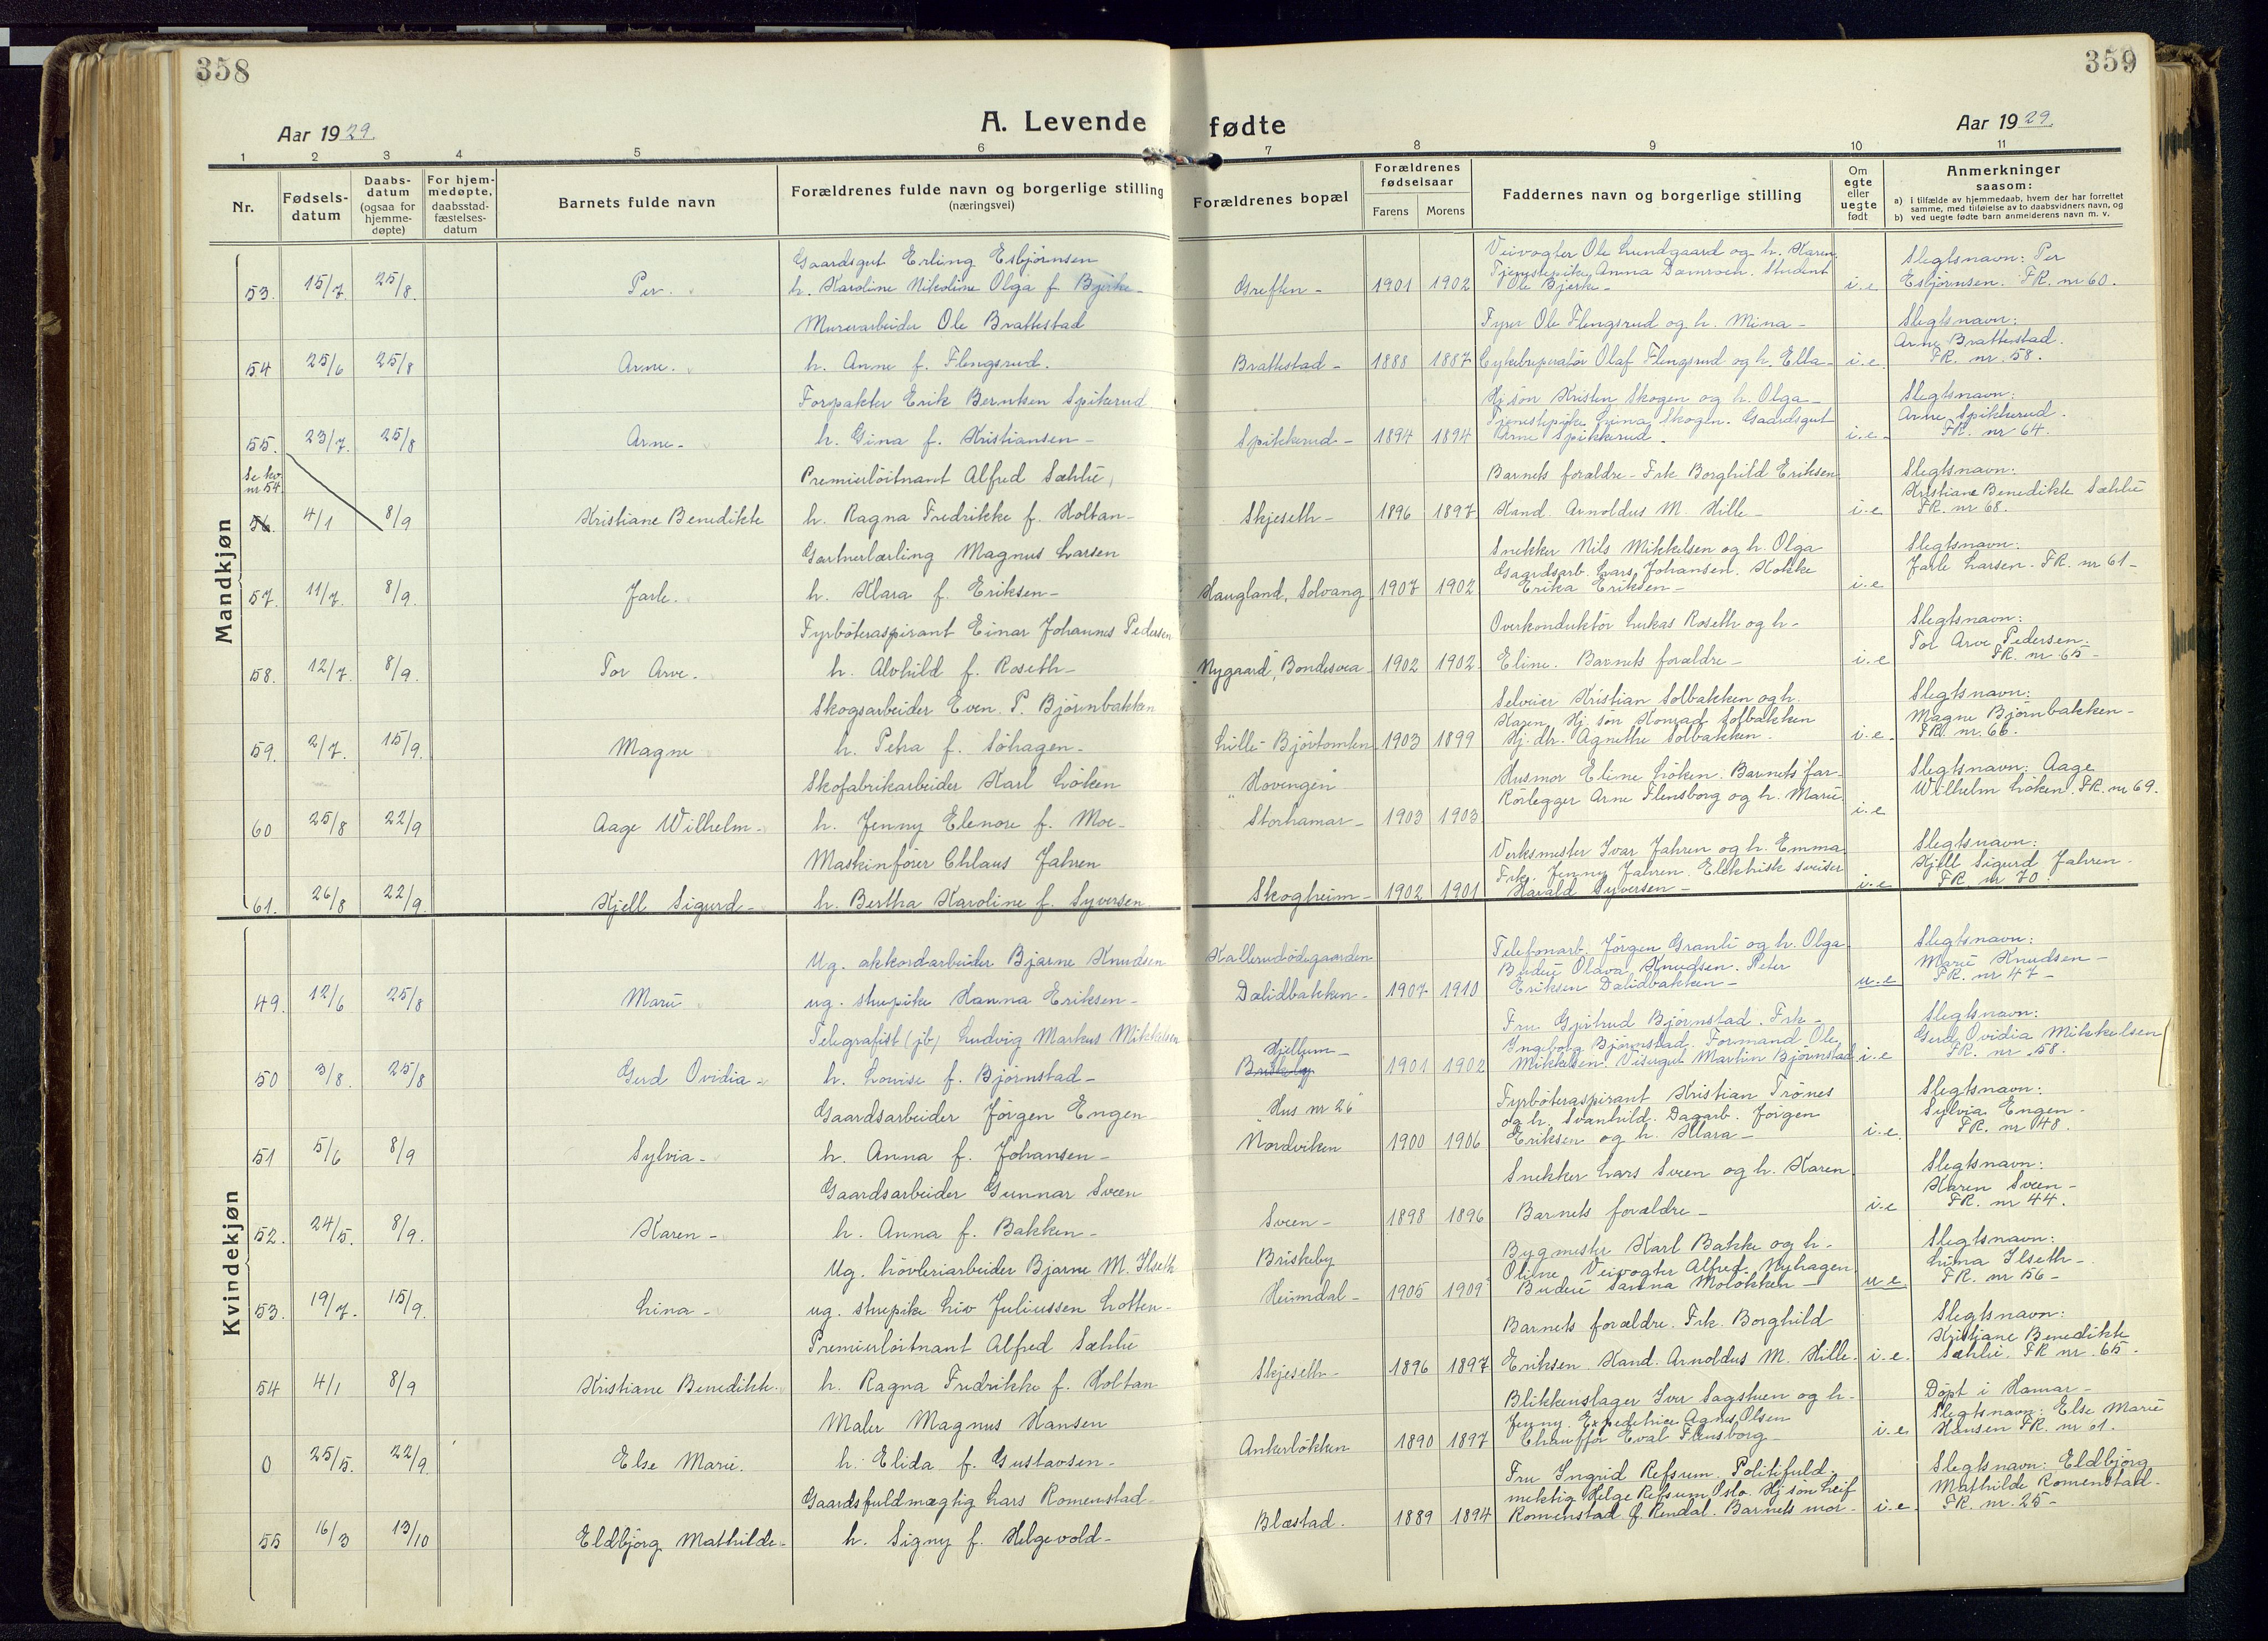 358
359
A. Levende fødte
Aar 1929.
Aar 1929.
1 2 3 4 5 6 7 8 9 10 11
Nr.
Fødsels-
datum
Daabs-
datum
(ogsaa for
hjemme-
døpte)
For hjem-
medøpte,
daabsstad-
fæstelses-
datum
Barnets fulde navn
Forældrenes fulde navn og borgerlige stilling
(næringsvei)
Forældrenes bopæl
Forældrenes
fødselsaar
Farens Morens
Faddernes navn og borgerlige stilling
Om
egte
eller
uegte
født
Anmerkninger
saasom:
a) i tilfælde av hjemmedaab, hvem der har forrettet
samme, med tilføielse av to daabsvidners navn, og
b) ved uegte fødte barn anmelderens navn m. v.
Mandkjøn
53. 15/7. 25/8. Per.
Gaardsgut Erling Esbjørnsen
h. Karoline Nikoline Olga f. Bjerke-
Greften - 1901 1902
Veivogter Ole Lundgaard og h. Karen.
Tjenestepike Anna Damroen. Student
Ole Bjerke-
i.e
Slegtsnavn: Per
Esbjørnsen. FR. nr 60.
54 25/6 25/8 Arne.
Murerarbeider Ole Brattestad
h. Anne f. Flengsrud.
Brattestad - 1888 1887
Fyrer Ole Flengsrud og h. Mina -
Cykelreparatør Olaf Flengsrud og h. Ella-
i.e.
Slegtsnavn:
Arne Brattestad.
FR. nr. 58.
55. 23/7. 25/8 Arne-
Forpakter Erik Berntsen Spikerud
h. Gina f. Kristiansen-
Spikkerud - 1894 1894
Hj.søn Kristen Skogen og h. Olga-
Tjenestepike Lina Skogen. Gaardsgut
Arne Spikkerud-
i.e-
Slegtsnavn:
Arne Spikkerud.
FR. nr 64.
Se kv.
nr 54.
56. 4/1 8/9 Kristiane Benedikte
Premierløitnant Alfred Sæhlie,
h. Ragna Fredrikke f. Holtan-
Skjeseth- 1896 1897
Barnets forældre - Frk Borghild Eriksen
Kand. Arnoldus M. Hille-
i.e
Slegtsnavn:
Kristiane Benedikte Sæhlie
FR. nr 68.
57. 11/7. 8/9. Jarle.
Gartnerlærling Magnus Larsen
h. Klara f. Eriksen-
Haugland, Solvang 1907 1902
Snekker Nils Mikkelsen og h. Olga
Gaardsarb. Lars Johansen. Kokke
Erika Eriksen-
i.e
Slegtsnavn:
Jarle Larsen. FR. nr 61-
58. 12/7. 8/9. Tor Arve.
Fyrbøteraspirant Einar Johannes Pedersen
h. Alvhild f. Roseth-
"Nygaard", Bondesvea- 1902 1902
Overkonduktør Lukas Roseth og h-
Eline. Barnets forældre-
i.e
Slegtsnavn:
Tor Arve Pedersen.
FR. nr. 65-
59. 2/7. 15/9. Magne
Skogsarbeider Even P. Bjørnbakken
h. Petra f. Søhagen-
Lille-Bjørtomten 1903 1899
Selveier Kristian Solbakken og h.
Karen. Hj. søn Konrad Solbakken
Hj. dtr. Agnethe Solbakken.
i.e.
Slegtsnavn:
Magne Bjørnbakken-
FR. nr. 66.
60 25/8 22/9 Aage Wilhelm-
Skofabrikarbeider Karl Løken
h. Jenny Elenore f. Moe-
"Hovengen"
Storhamar- 1903 1903
Husmor Eline Løken. Barnets far-
Rørlegger Arne Flensborg og h. Marie.
i.e
Slegtsnavn: Aage
Wilhelm Løken. FR. nr 69.
61. 26/8 22/9. Kjell Sigurd-
Maskinfører Chlaus Jahren
h. Bertha Karoline f. Syversen.
Skogheim- 1902 1901
Verksmester Ivar Jahren og h. Emma.
Frk. Jenny Jahren. Elektrisk sveiser
Harald Syversen-
i.e
Slegtsnavn:
Kjell Sigurd Jahren.
FR. nr 70.
Kvindekjøn
49. 12/6 25/8 Marie
Ug. akkordarbeider Bjarne Knudsen
ug. stuepike Hanna Eriksen-
Kallerudødegaarden
Dælidbakken- 1907 1910
Telefonarb. Jørgen Granli og h. Olga.
Budeie Olava Knudsen. Peter
Eriksen Dælidbakken-
u.e
Slegtsnavn:
Marie Knudsen-
FR. nr 47-
50 3/8. 25/8 Gerd Ovidia-
Telegrafist (jb) Ludvig Markus Mikkelsen
h. Lovise f. Bjørnstad-
Hjellum-
Briskeby 1901 1902
Fru Gjertrud Bjørnstad. Frk-
Ingeborg Bjørnstad. Formand Ole
Mikkelsen. Visergut Martin Bjørnstad
i.e
Slegtsnavn:
Gerd Ovidia Mikkelsen
FR. nr. 58.
51 5/6 8/9 Sylvia-
Gaardsarbeider Jørgen Engen
h. Anna f. Johansen-
"Hus nr 26"
Nordviken 1900 1906
Fyrbøteraspirant Kristian Trønes
og h. Svanhild. Dagarb. Jørgen
Eriksen og h. Klara-
i.e.
Slegtsnavn:
Sylvia Engen.
FR. nr 48.
52. 24/5. 8/9. Karen-
Gaardsarbeider Gunnar Sveen
h. Anna f. Bakken-
Sveen- 1898 1896
Snekker Lars Sveen og h. Karen.
Barnets forældre-
i.e
Slegtsnavn:
Karen Sveen-
FR. nr 44.
53. 19/7. 15/9. Lina-
Ug. høvleriarbeider Bjarne M. Ilseth
ug. stuepike Liv Juliussen Lotten-
Briskeby
Heimdal- 1905 1909
Bygmester Karl Bakke og h-
Oline. Veivogter Alfred Nyhagen
Budeie Sanna Moløkken-
u.e
Slegtsnavn:
Lina Ilseth-
FR. nr 56-
54 4/1 8/9 Kristiane Benedikte.
Premierløitnant Alfred Sæhlie
h. Ragna Fredrikke f. Holtan
Skjeseth- 1896 1897
Barnets forældre. Frk. Borghild
Eriksen. Kand. Arnoldus M. Hille-
i.e.
Slegtsnavn:
Kristiane Benedikte
Sæhlie. FR nr. 65.
0 25/5. 22/9. Else Marie.
Maler Magnus Hansen
h. Elida f. Gustavsen-
Ankerløkken 1890 1897
Blikkenslager Iver Sagstuen og h-
Jenny. Expeditrice Agnes Olsen
Chauffør Eval Flensborg-
i.e
Døpt i Hamar-
Slegtsnavn: Else Marie
Hansen FR. nr 61.
55 16/3 13/10 Eldbjørg Mathilde-
Gaardsfuldmægtig Lars Romenstad-
h. Signy f. Helgevold-
Blæstad. 1889 1894
Fru Ingrid Refsum. Politifuld-
mektig Helge Refsum Oslo. Hj søn Leif
Romenstad f. Rendal. Barnets mor-
i.e
Slegtsnavn: Eldbjørg
Mathilde Romenstad.
FR. nr. 25-